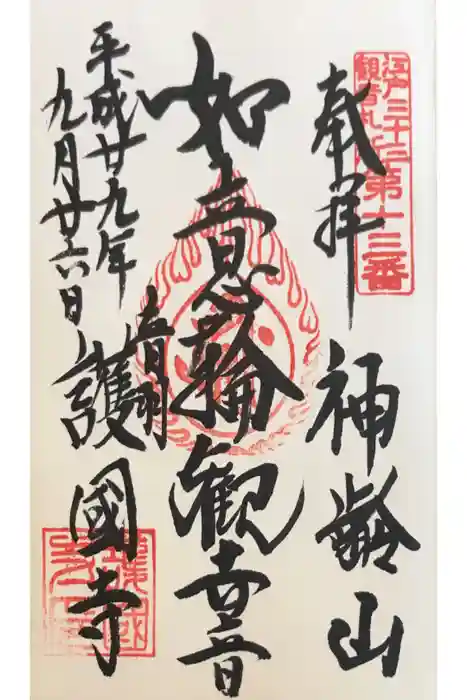 江戸三十三
観音札所
第十三番
奉拝
神齢山
如意輪観世音
青明
護國寺
平成廿九年
九月廿六日